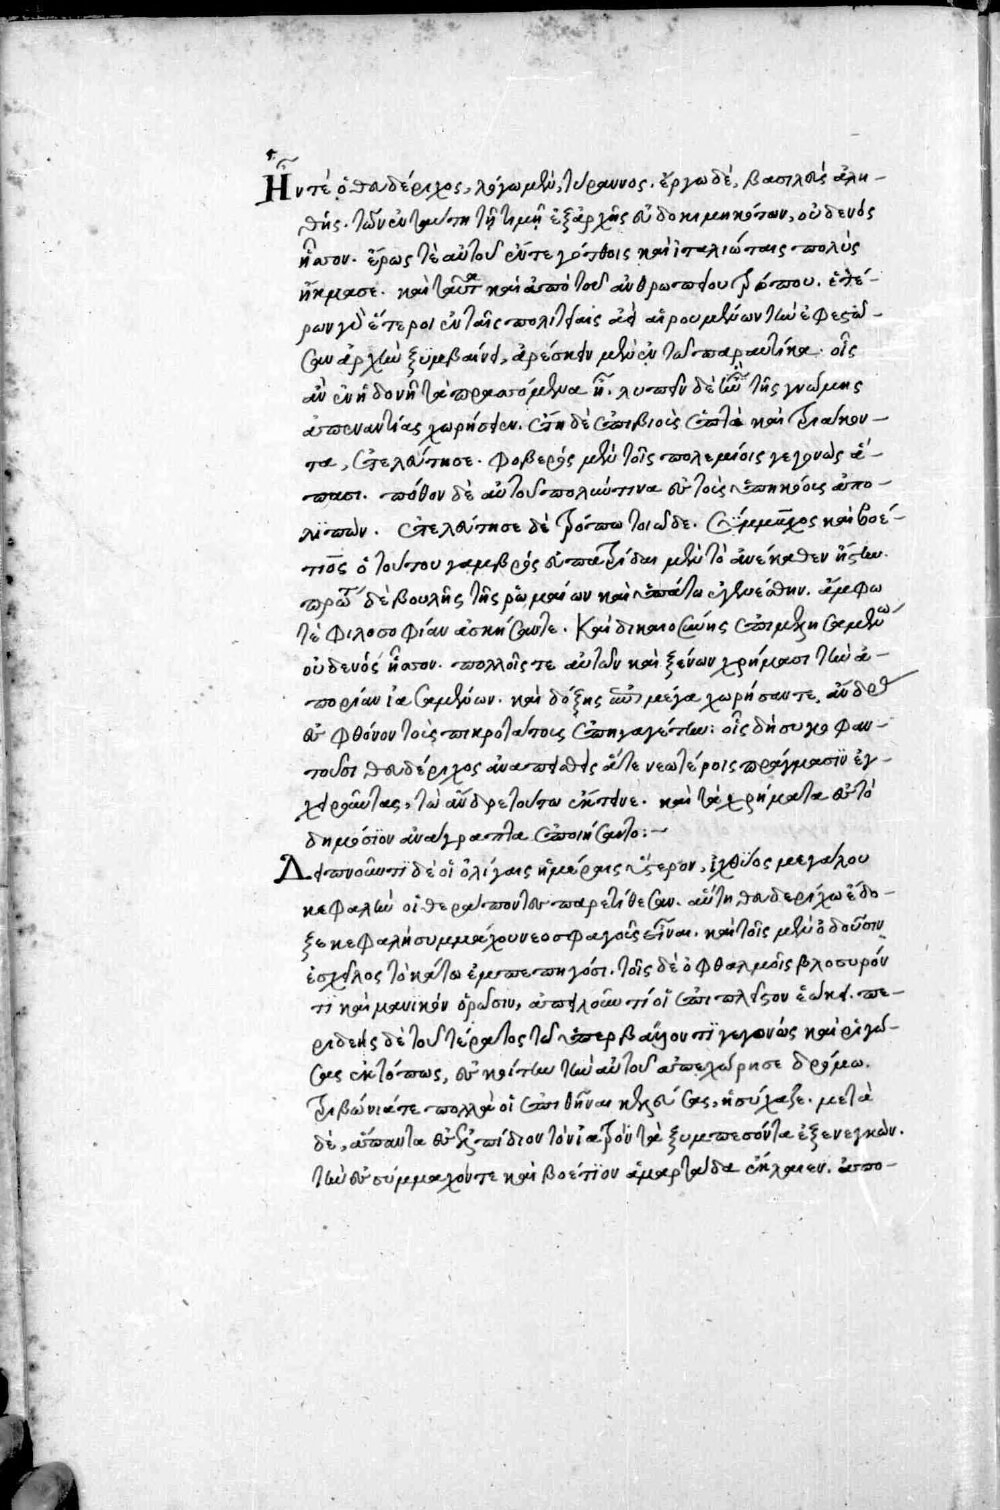 Ἦν τέ ὁ θευδέριχος, λόγω μὲν, τύραννος. ἔργω δὲ, βασιλεὺς ἀλη-
θής. τῶν ἐν ταύτη τῆ τιμῆ ἐξαρχῆς εὐδοκιμηκότων, οὐδενὸς
ἧσσον. ἔρως τὲ αὐτοῦ ἔν τε γότθοις καὶ ἰταλιώταις πολὺς
ἤκμασε. καὶ ταῦτα καὶ ἀπὸ τοῦ ἀνθρωπείου τρόπου. ἑτέ-
ρων γὰρ ἕτεροι ἐν ταῖς πολιτείαις ἀεὶ αἱρουμένων τὴν ἐφεστῶ-
σαν ἀρχὴν ξυμβαίνει, ἀρέσκειν μὲν ἐν τῶ παραυτίκα. οἷς
ἂν ἐν ἡδονῆ τὰ πρασσόμενα ἦ. λυπεῖν δὲ ὧν τῆς γνώμης
ἀπεναντίας χωρήσειεν. ἔτη δὲ ἐπιβιοὺς ἑπτὰ καὶ τριάκον-
τα, ἐτελεύτησε. φοβερὸς μὲν τοῖς πολεμίοις γεγονὼς ἅ-
πασι. πόθον δὲ αὐτοῦ πολύν τινα ἐς τοὺς ὑπηκόους ἀπο-
λιπών. ἐτελεύτησε δὲ τρόπω τοιῶδε. σύμμαχος καὶ βοέ-
τιος ὁ τούτου γαμβρὸς εὐπατρίδαι μὲν τὸ ἀνέκαθεν ἤστην.
πρῶτοι δὲ βουλῆς τῆς ῥωμαίων καὶ ὑπάτω ἐγενέσθην. ἄμφω
τὲ φιλοσοφίαν ἀσκήσαντε. καὶ δικαιοσύνης ἐπιμελησαμένω
οὐδενὸς ἧσσον. πολλοῖς τε αὐτῶν καὶ ξένων χρήμασι τὴν ἀ-
πορίαν ἰασαμένων. καὶ δόξης ἐπὶ μέγα χωρήσαντε, ἄνδρας
ἐς φθόνον τοὺς πικροτάτους ἐπηγαγέτην: οἷς δὴ συκοφαν-
τοῦσι θευδέριχος ἀναπεισθεὶς ἅτε νεωτέροις πράγμασιν ἐγ-
χειροῦντας, τὼ ἄνδρε τούτω ἔκτεινε. καὶ τὰ χρήματα ἐς τὸ
δημόσιον ἀνάγραπτα ἐποιήσατο:–
Δειπνοῦντι δέ οἱ ὀλίγαις ἡμέραις ὕστερον, ἰχθύος μεγάλου
κεφαλὴν οἱ θεράποντες παρετίθεσαν. αὕτη θευδερίχω ἔδο-
ξε κεφαλὴ συμμάχου νεοσφαγοῦς εἶναι. καὶ τοῖς μὲν ὀδοῦσιν
ἐς χεῖλος τὸ κάτω ἐμπεπηγόσι. τοῖς δὲ ὀφθαλμοῖς βλοσυρόν
τι καὶ μανικὸν ὁρῶσιν, ἀπειλοῦντί οἱ ἐπὶ πλεῖστον ἐώκει. πε-
ριδεὴς δὲ τοῦ τέρατος τῶ ὑπερβάλλοντι γεγονὼς καὶ ῥιγώ-
σας ἐκτόπως, ἐς κοίτην τὴν αὐτοῦ ἀπεχώρησε δρόμω.
τριβώνιά τε πολλά οἱ ἐπιθεῖναι κελεύσας, ἡσύχαζε. μετὰ
δὲ, ἅπαντα ἐς ἐλπίδιον τὸν ἰατρὸν τὰ ξυμπεσόντα ἐξενεγκὼν.
τὴν ἐς σύμμαχόν τε καὶ βοέτιον ἁμαρτάδα ἔκλαιεν. ἀπο-